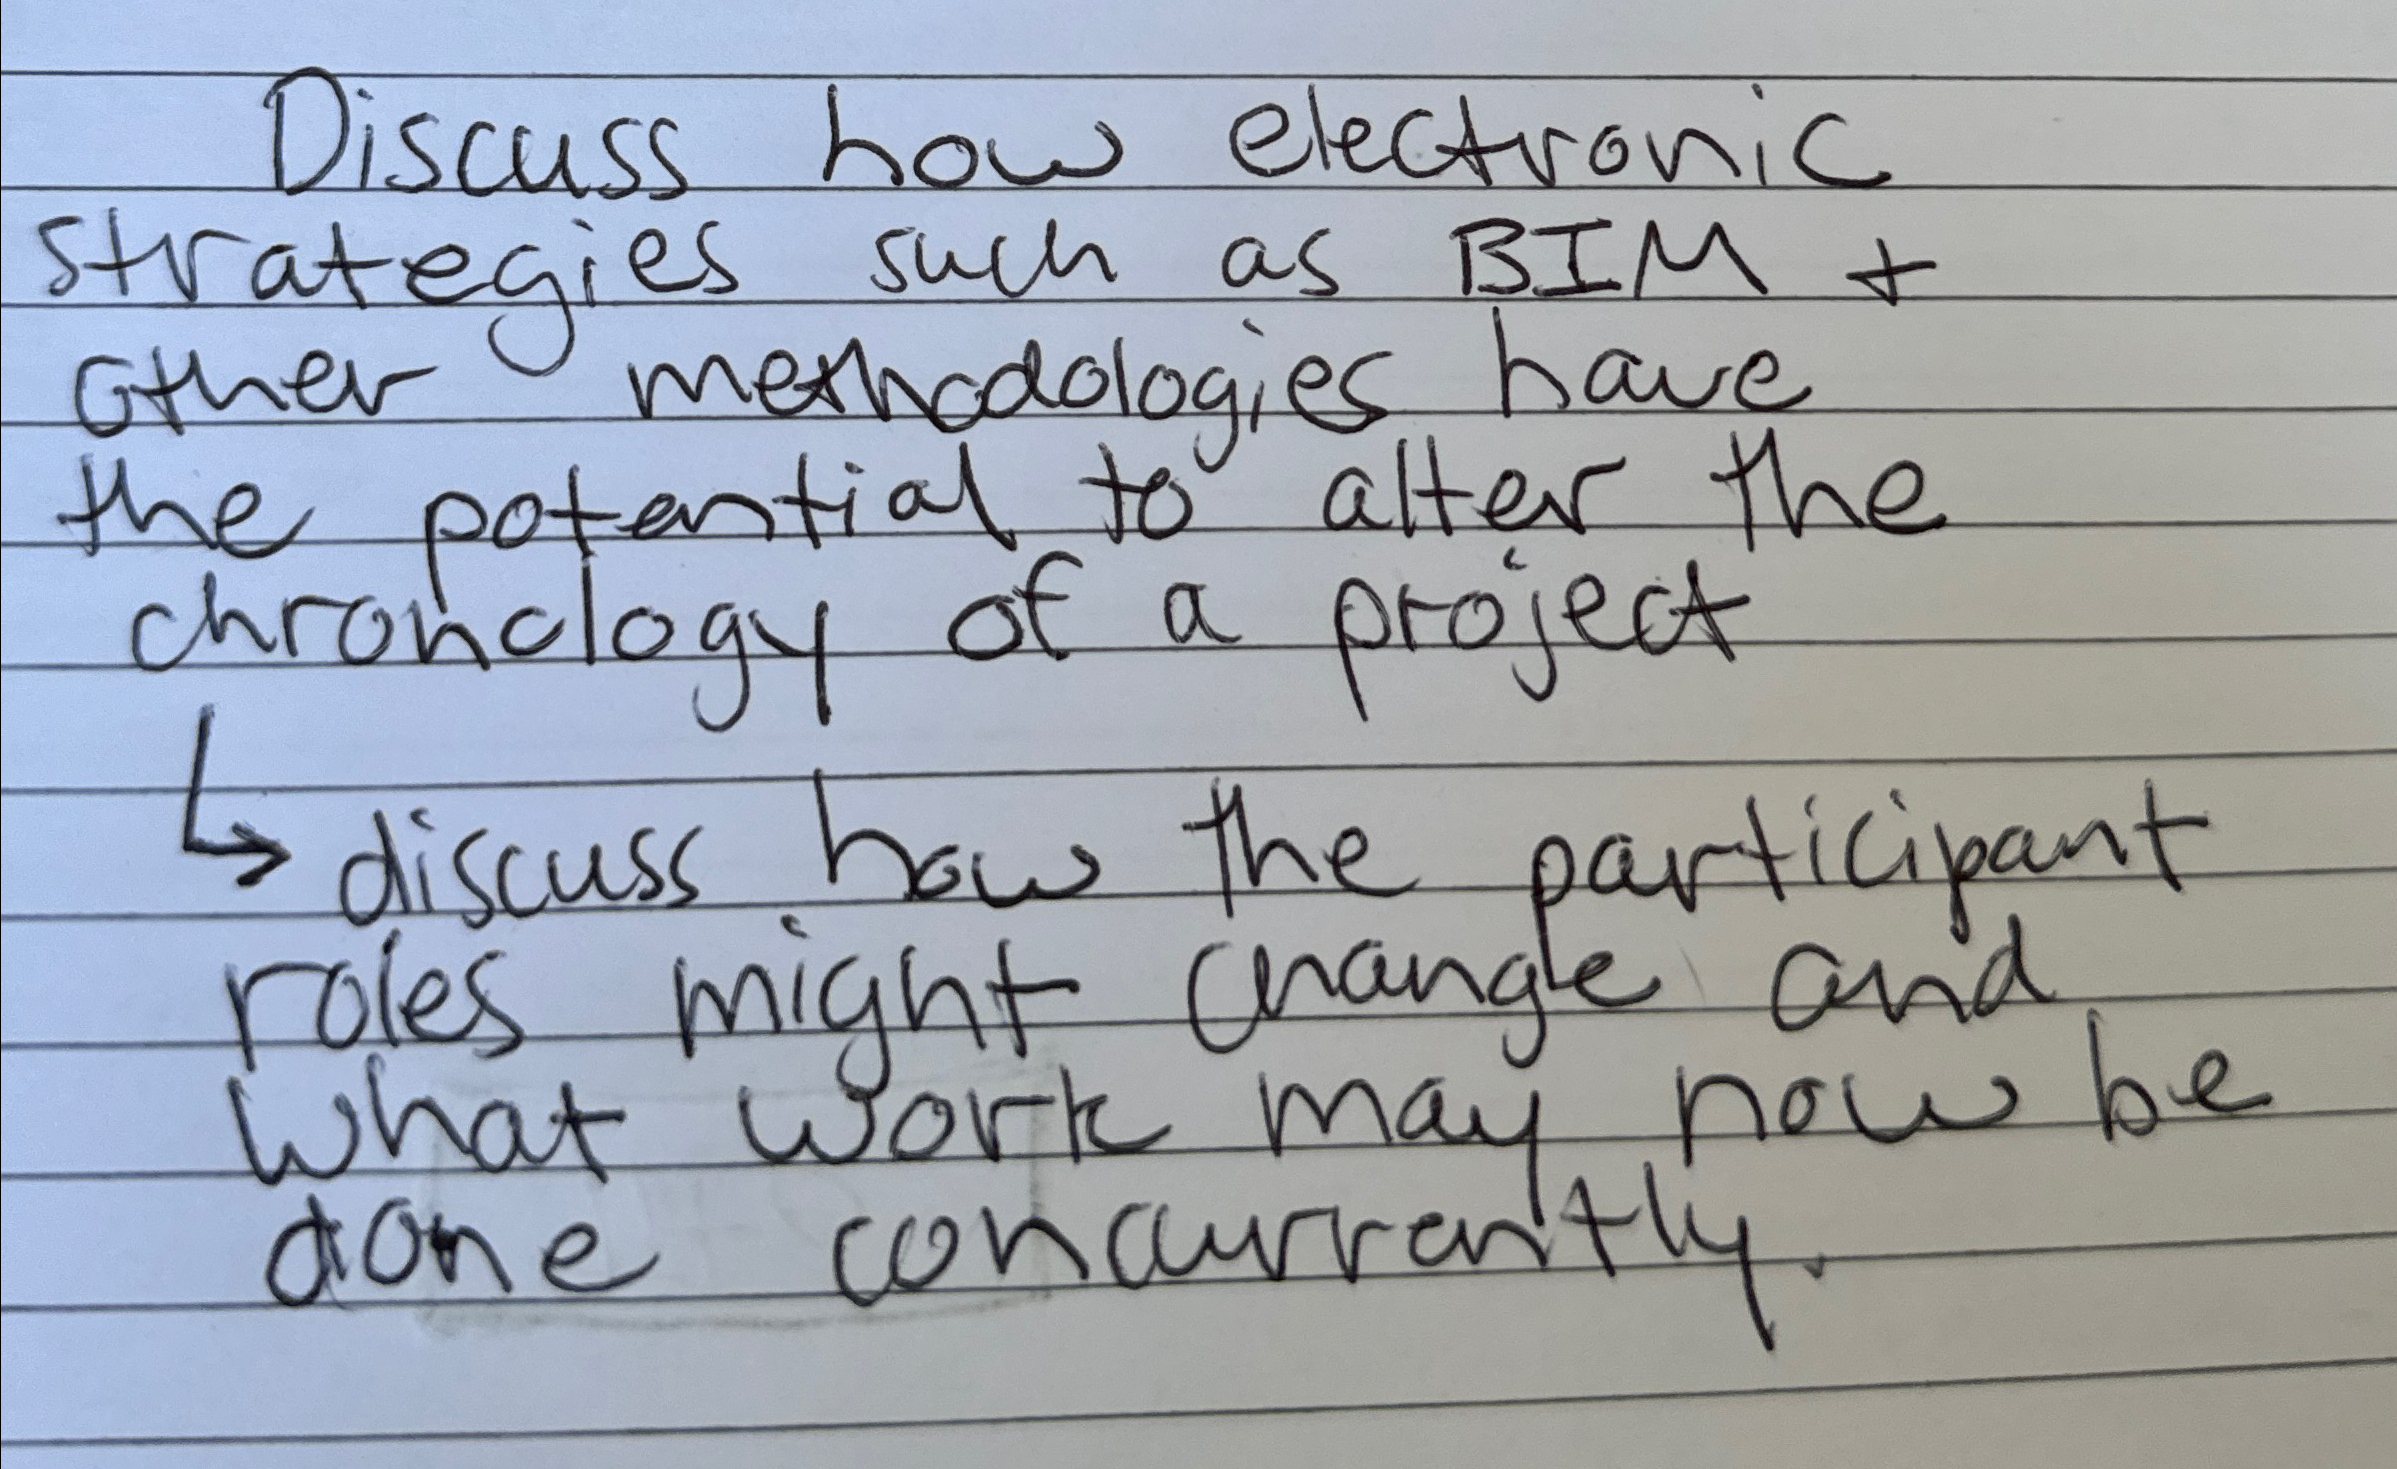 Discuss how electronic
strategies such as BIM +
other methodologies have
the potential to alter the
chronology of a project
↳ discuss how the participant
roles might change and
what work may now be
done concurrently.